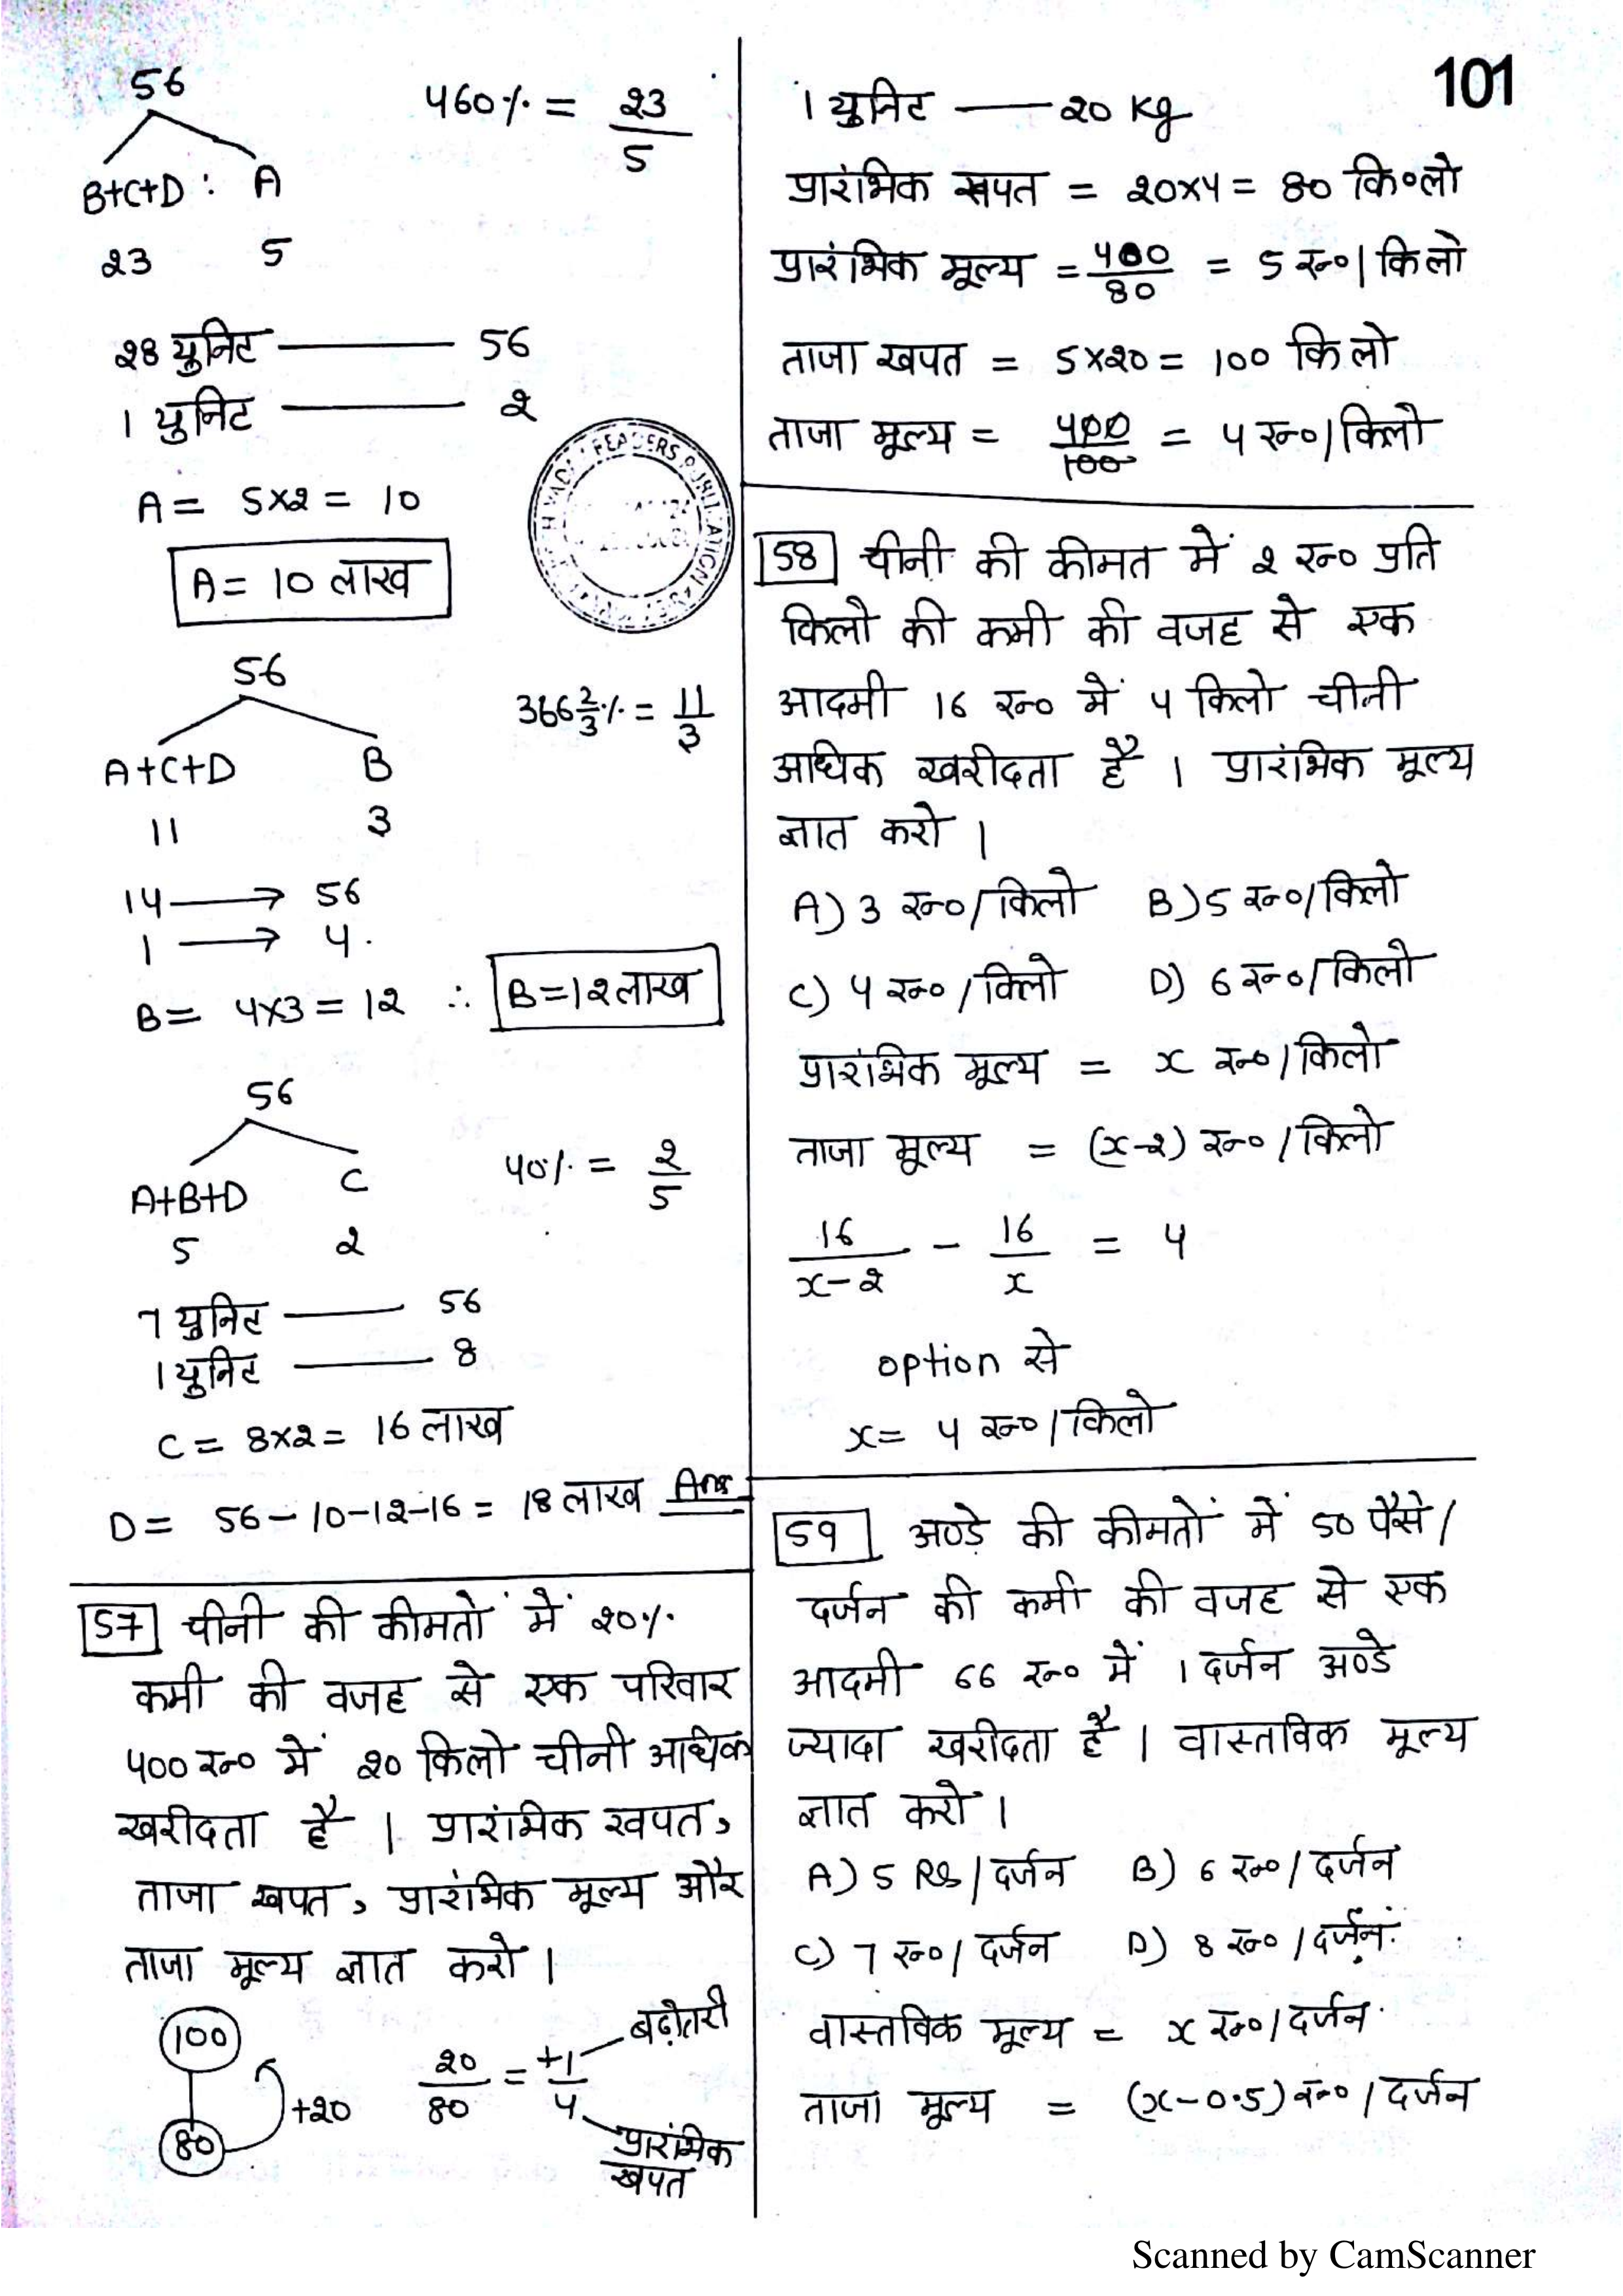 101
56
460% = 23/5
B+C+D : A
23 5
28 युनिट —— 56
1 युनिट —— 2
A = 5×2 = 10
A = 10 लाख
56
366 2/3% = 11/3
A+C+D B
11 3
14 → 56
1 → 4
B = 4×3 = 12 ∴ B=12 लाख
56
40% = 2/5
A+B+D C
5 2
7 युनिट —— 56
1 युनिट —— 8
C = 8×2 = 16 लाख
D = 56-10-12-16 = 18 लाख Ans
57 चीनी की कीमतों में 20%
कमी की वजह से एक परिवार
400 रू० में 20 किलो चीनी अधिक
खरीदता है । प्रारंभिक खपत,
ताजा खपत, प्रारंभिक मूल्य और
ताजा मूल्य ज्ञात करो ।
100
80
+20
20/80 = +1/4
बढ़ोतरी
प्रारंभिक
खपत
1 युनिट —— 20 Kg
प्रारंभिक खपत = 20×4 = 80 कि०लो
प्रारंभिक मूल्य = 400/80 = 5 रू०/किलो
ताजा खपत = 5×20 = 100 किलो
ताजा मूल्य = 400/100 = 4 रू०/किलो
58 चीनी की कीमत में 2 रू० प्रति
किलो की कमी की वजह से एक
आदमी 16 रू० में 4 किलो चीनी
अधिक खरीदता है । प्रारंभिक मूल्य
ज्ञात करो ।
A) 3 रू०/किलो B) 5 रू०/किलो
C) 4 रू०/किलो D) 6 रू०/किलो
प्रारंभिक मूल्य = x रू०/किलो
ताजा मूल्य = (x-2) रू०/किलो
16/x-2 - 16/x = 4
option से
x = 4 रू०/किलो
59 अण्डे की कीमतों में 50 पैसे/
दर्जन की कमी की वजह से एक
आदमी 66 रू० में 1 दर्जन अण्डे
ज्यादा खरीदता है । वास्तविक मूल्य
ज्ञात करो ।
A) 5 RS/दर्जन B) 6 रू०/दर्जन
C) 7 रू०/दर्जन D) 8 रू०/दर्जन
वास्तविक मूल्य = x रू०/दर्जन
ताजा मूल्य = (x-0.5) रू०/दर्जन
Scanned by CamScanner